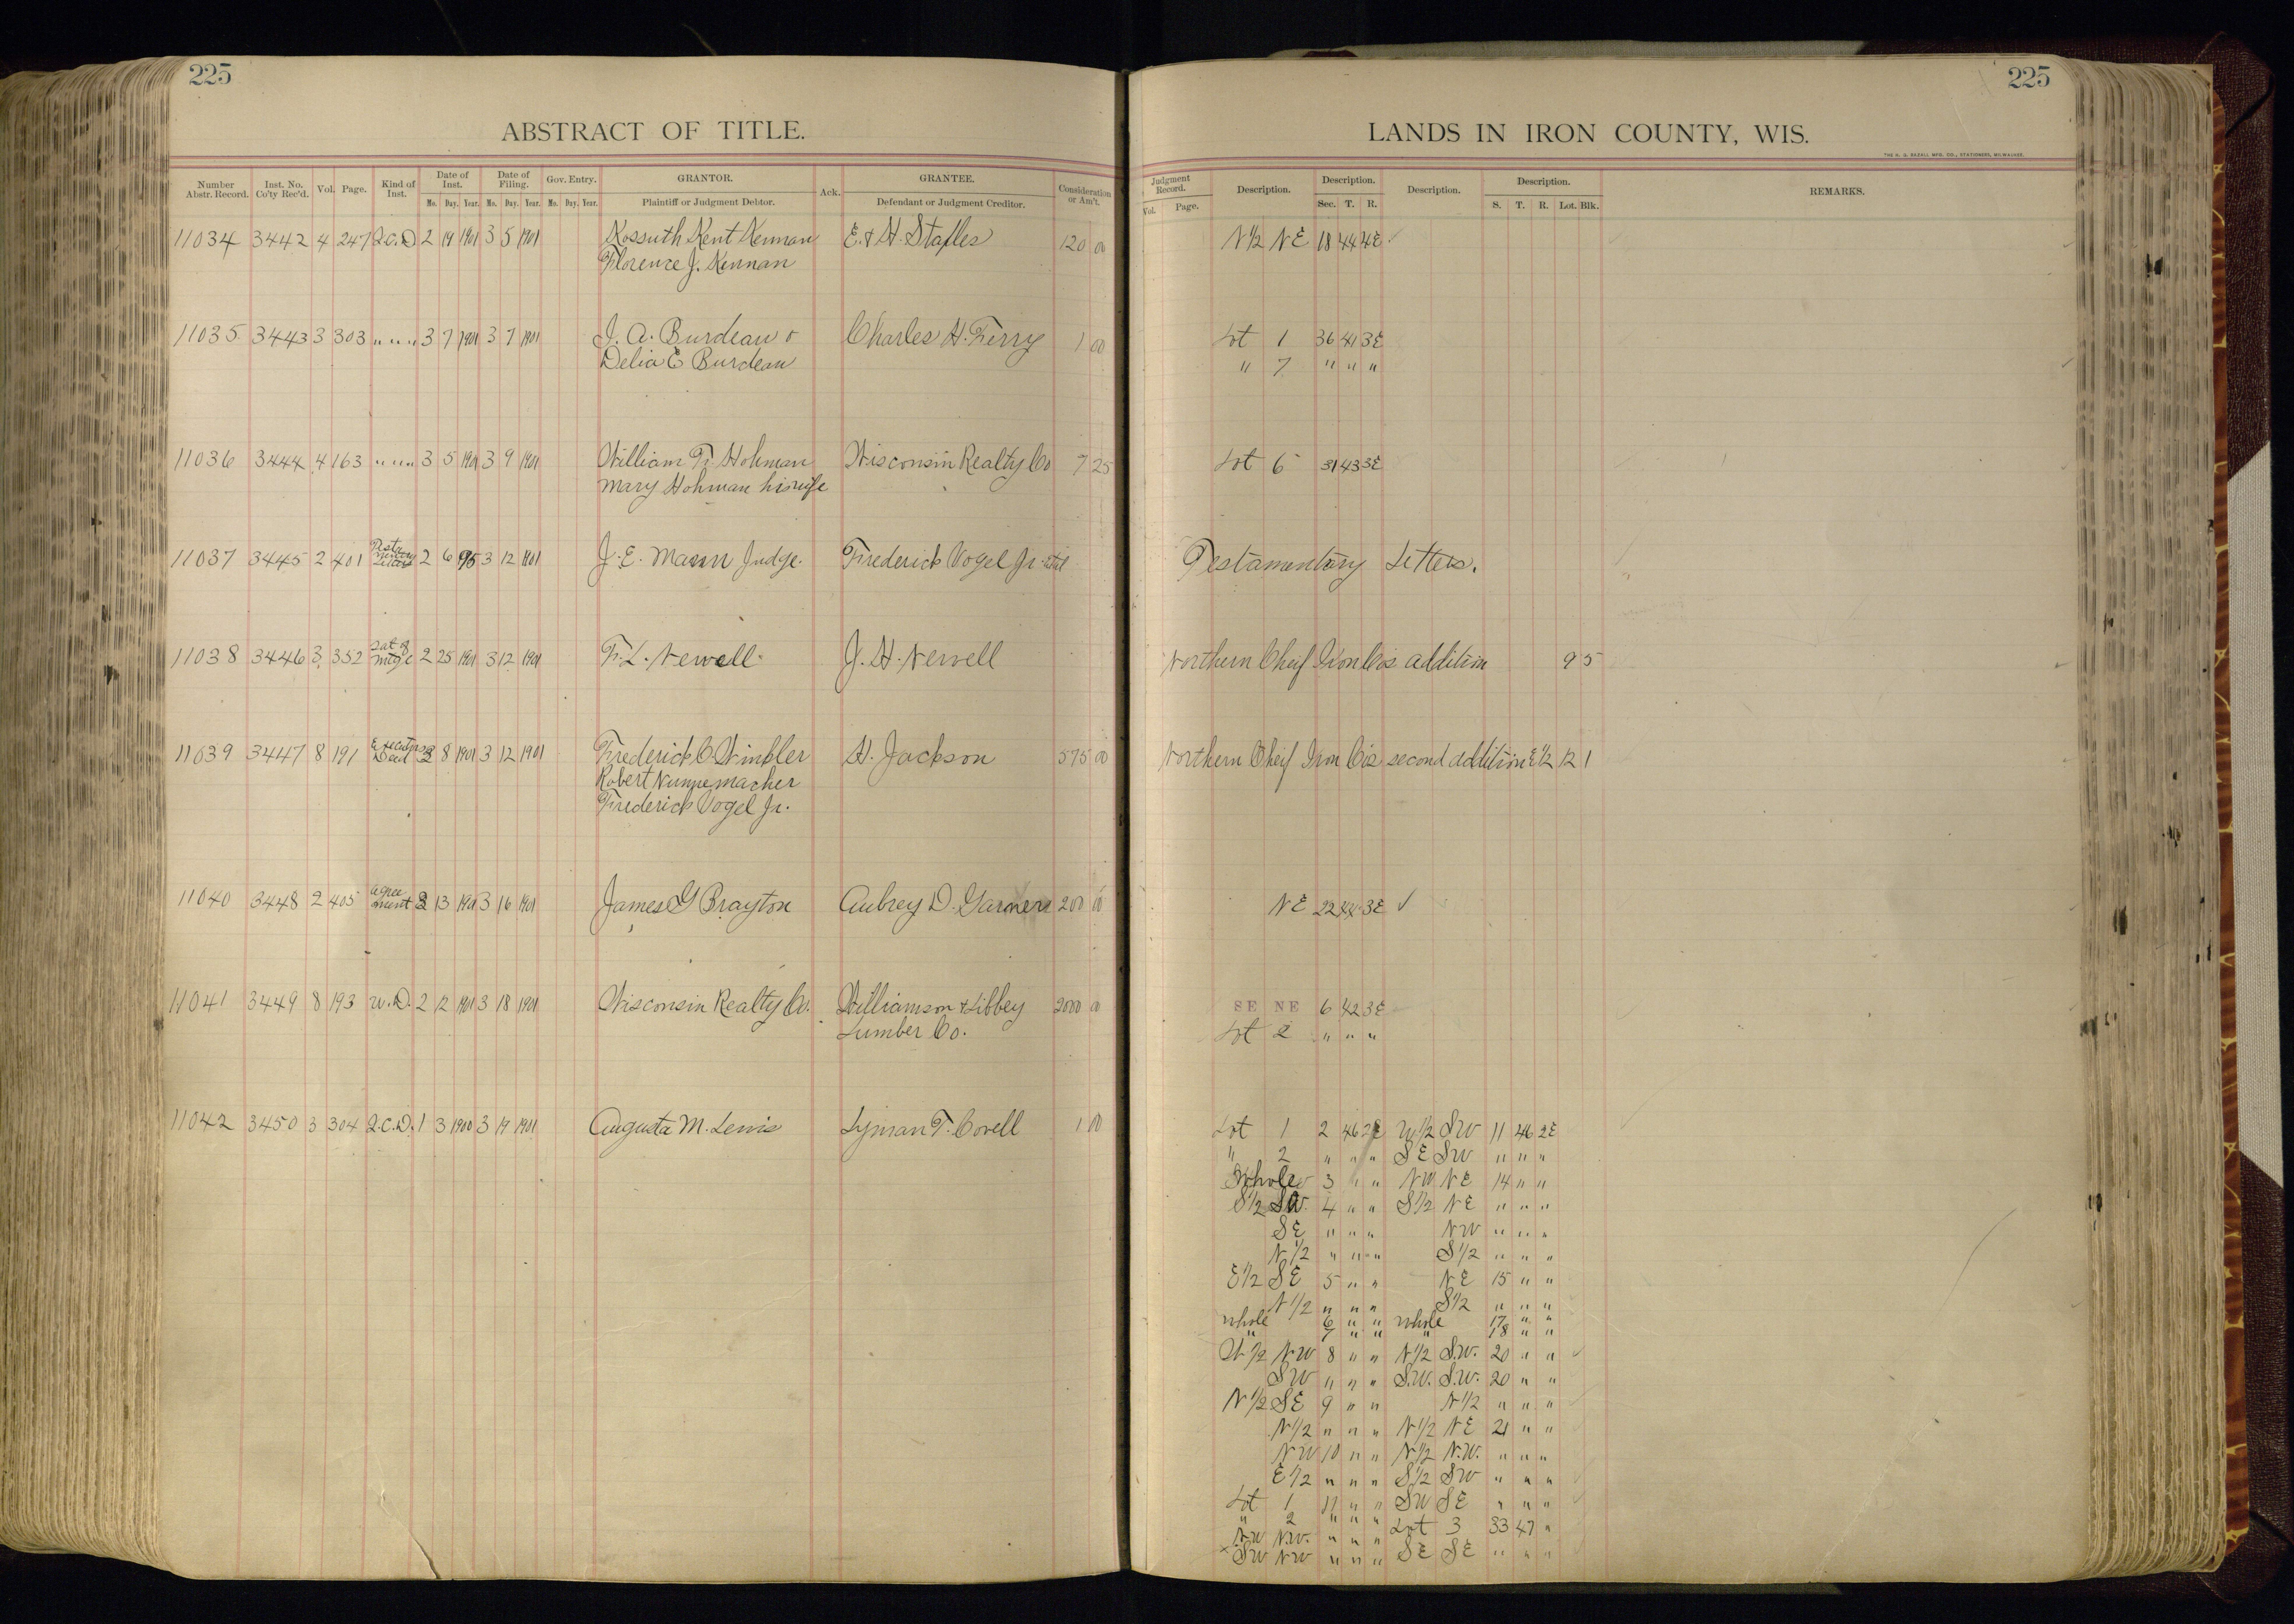 225
ABSTRACT OF TITLE.
Number Abstr. Record. Inst. No. Co'ty Rec'd. Vol. Page. Kind of Inst. Date of Inst. Mo. Day. Year. Date of Filing. Mo. Day. Year. Gov. Entry. Mo. Day. Year. GRANTOR. Plaintiff or Judgment Debtor. Ack. GRANTEE. Defendant or Judgment Creditor. Consideration or Am't.
11034 3442 4 247 Q.C.D 2 19 1901 3 5 1901 Kossuth Kent Kennan E. & H. Staples 120 00
Florence J. Kennan
11035 3443 3 303 " " " 3 7 1901 3 7 1901 J. A. Burdeau & Charles H. Ferry 1 00
Delia E Burdeau
11036 3444 4 163 " " " 3 5 1901 3 9 1901 William F. Hohman Wisconsin Realty Co 7 25
Mary Hohman his wife
11037 3445 2 401 Testamentary Letters 2 6 95 3 12 1901 J. E. Mann Judge. Frederick Vogel Jr. etal
11038 3446 3 352 Sat of Mtge 2 25 1901 3 12 1901 F. L. Newell. J. H. Newell
11039 3447 8 191 Executors Deed 2 8 1901 3 12 1901 Frederick C. Winkler H. Jackson 575 00
Robert Nunnemacher
Frederick Vogel Jr.
11040 3448 2 405 Agreement 3 13 1901 3 16 1901 James G Brayton Aubrey D. Garner 200 00
11041 3449 8 193 W.D. 2 12 1901 3 18 1901 Wisconsin Realty Co. Williamson & Libbey 2000 00
Lumber Co.
11042 3450 3 304 Q.C.D. 1 3 1900 3 19 1901 Augusta M. Lewis Lyman T. Covell 1 00
225
LANDS IN IRON COUNTY, WIS.
THE H. G. RAZALL MFG. CO., STATIONERS, MILWAUKEE.
Judgment Record. Vol. Page. Description. Description. Sec. T. R. Description. Description. S. T. R. Lot. Blk. REMARKS.
N 1/2 NE 18 44 4E
Lot 1 36 41 3E
" 7 " " "
Lot 6 31 43 3E
Testamentary Letters.
Northern Cheif Iron Co's addition 9 5
Northern Cheif Iron Co's second addition E 1/2 12 1
NE 22 44 3E ✓
SE NE 6 42 3E
Lot 2 " " "
Lot 1 2 46 2E W 1/2 SW 11 46 2E
" 2 " " " SE SW " " "
Whole 3 " " NW NE 14 " "
S 1/2 SW. 4 " " S 1/2 NE " " "
SE " " " NW " " "
N 1/2 " " " S 1/2 " " "
E 1/2 SE 5 " " NE 15 " "
N 1/2 " " " S 1/2 " " "
whole 6 " " whole 17 " "
" 7 " " " 18 " "
W 1/2 NW 8 " " N 1/2 S.W. 20 " "
SW " " " S.W. S.W. 20 " "
N 1/2 SE 9 " " N 1/2 " " "
N 1/2 " " " N 1/2 NE 21 " "
NW 10 " " N 1/2 N.W. " " "
E 1/2 " " " S 1/2 SW " " "
Lot 1 11 " " SW SE " " "
" 2 " " " Lot 3 33 47 "
NW NW. " " " SE SE " " "
x SW NW " " "